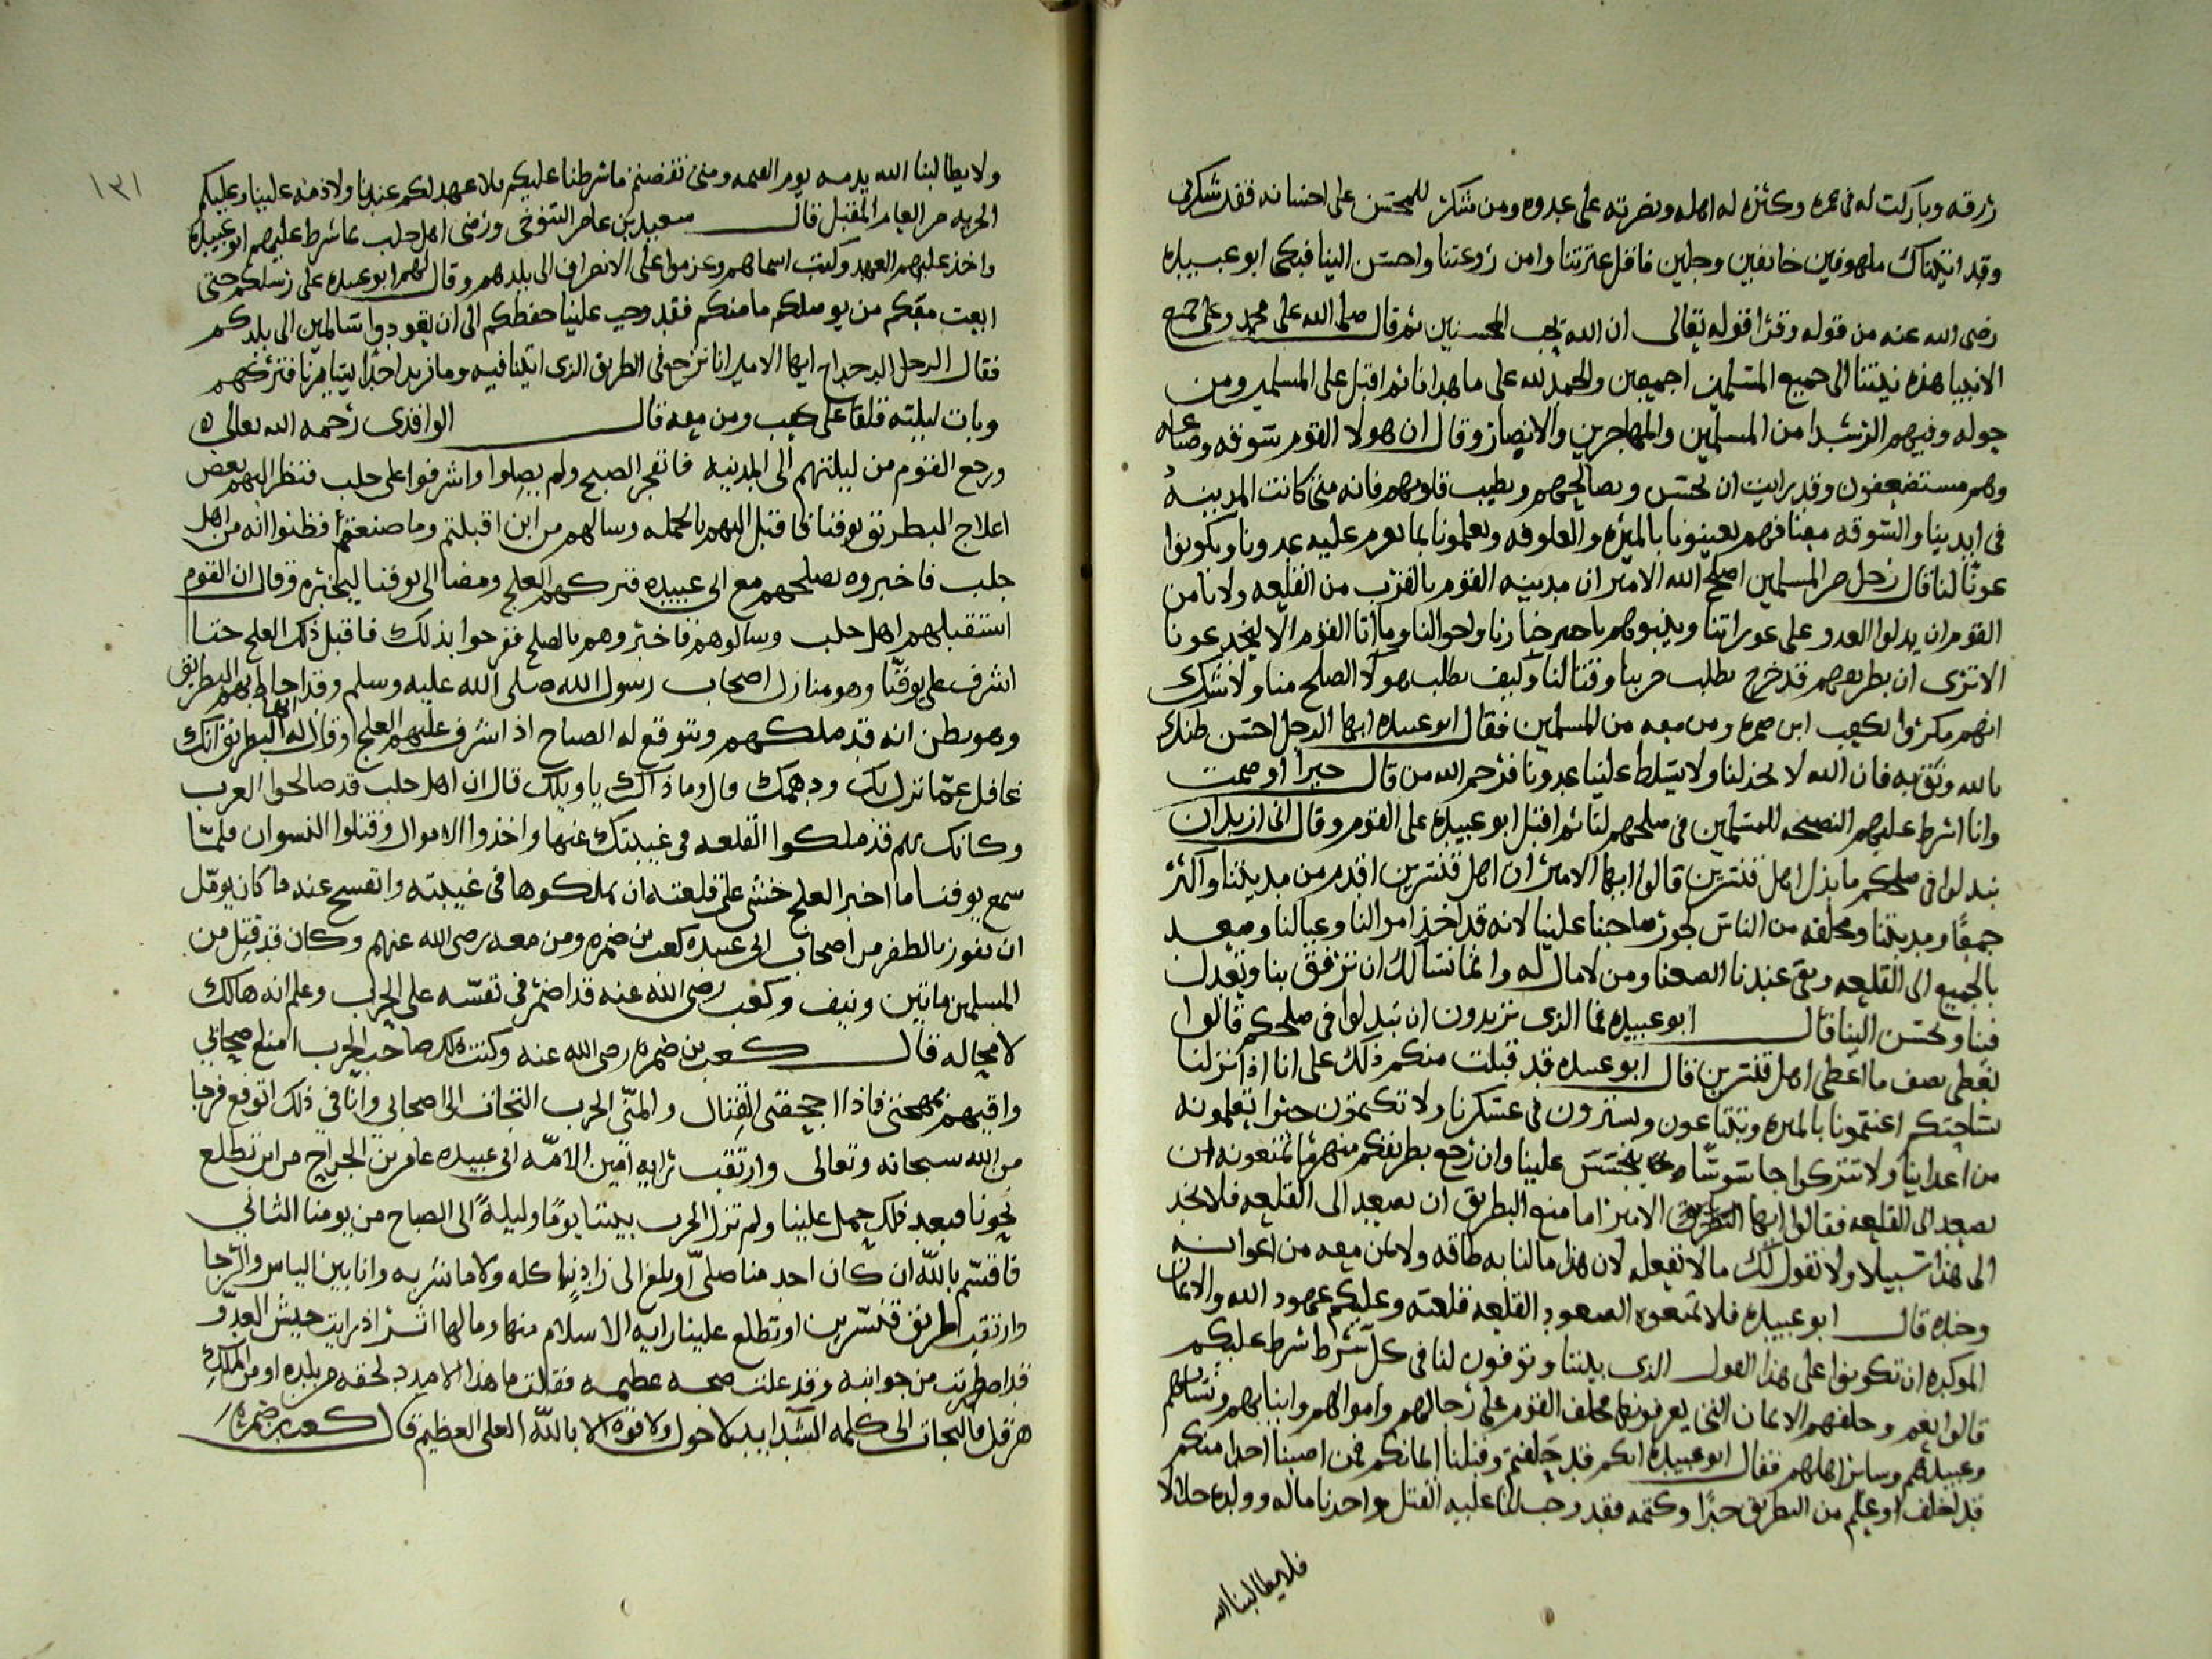 رزقه وباركت له فى عمره وكثره له اهله ونصرته على عدوه ومن شكر للمحسن على احسانه فقد شكرنى
وقد اتيناك ملهوفين خايفين وجلين فاقل عثرتنا وامن روعتنا واحسن الينا فبكى ابو عبيده
رضى الله عنه من قوله وقرا قوله تعالى ان الله يحب المحسنين ثم قال صلى الله على محمد وعلى جميع
الانبيا هذه نيتنا الى جميع المسلمين اجمعين والحمد لله على ما هدانا ثم اقبل على المسلمين ومن
حوله وفيهم الرشدا من المسلمين والمهاجرين والانصار وقال ان هولا القوم سوقه وصناع
وهم مستضعفون وقد رايت ان نحسن ونصالحهم ونطيب قلوبهم فانه متى كانت المدينة
فى ايدينا والسوقه معنا فهم يعينونا بالميره والعلوفه ويعلمونا بما يعزم عليه عدونا ويكونوا
عونا لنا قال رجل من المسلمين اصلح الله الامير ان مدينه القوم بالقرب من القلعه ولا نامن
القوم ان يدلوا العدو على عوراتنا وينبوهم باخبارنا واحوالنا وما اتا القوم الا ليخدعونا
الا ترى ان بطريقهم قد خرج يطلب حربنا وقتالنا وكيف يطلب هولا الصلح منا ولا شك
انهم مكروا بكعب ابن ضمره ومن معه من المسلمين فقال ابو عبيده ايها الرجل احسن ظنك
بالله وثق به فان الله لا يخذلنا ولا يسلط علينا عدونا فرحم الله من قال خيرا او صمت
وانا اشرط عليهم النصيحه للمسلمين فى صلحهم لنا ثم اقبل ابو عبيده على القوم وقال انى اريد ان
تبدلوا فى صلحكم ما بذل اهل قنسرين قالوا ايها الامير ان اهل قنسرين اقدم من مدينتنا واكثر
جمعا ومدينتنا من الناس لجور صاحبنا علينا لانه قد اخذ اموالنا وعيالنا وصعد
بالجميع الى القلعه وبقى عندنا الضعفا ومن لا مال له وانما نسالك ان ترفق بنا وتعدل
فينا وتحسن الينا قال ابو عبيده فما الذى تريدون ان تبدلوا فى صلحكم قالوا
نعطى نصف ما اعطى اهل قنسرين قال ابو عبيده قد قبلت منكم ذلك على انا اذا نزلنا
بساحتكم اعنتمونا بالميره وتبتاعون وتشترون فى عسكرنا ولا تكتمون خبرا تعلمونه
من اعداينا ولا تتركوا جاسوسا يتجسس علينا وان رجع بطريقكم منهزما تمنعونه من
يصعد الى القلعه فقالوا ايها الامير اما منع البطريق ان يصعد الى القلعه فلا نجد
الى هذا سبيلا ولا نقول لك ما لا نفعل لان هذا ما لنا به طاقه ولا بمن معه من اعوانه
وجنده قال ابو عبيده فلا تمنعوه الصعود القلعه قلعته وعليكم عهود الله والايمان
الموكده ان تكونوا على هذا القول الذى بيننا وتوفون لنا فى كل شرط شرط عليكم
قالوا نعم وحلفهم الايمان التى يعرفونها فحلف القوم على رجالهم واموالهم وابنايهم ونسايهم
وعبيدهم وساير اهلهم فقال ابو عبيده انكم قد حلفتم وقبلنا ايمانكم فمن اصبنا احدا منكم
قد اخلف او علم من البطريق خبرا وكتمه فقد وجب لنا عليه القتل واخذنا ماله وولده حلالا
فلا يطالبنا الله
١٣١
ولا يطالبنا الله بدمه يوم القيمه ومتى نقضتم ما شرطنا عليكم فلا عهد لكم عندنا ولا ذمه علينا وعليكم
الجزيه من العام المقبل قال سعيد بن عامر التنوخى ورضى اهل حلب بما شرط عليهم ابو عبيده
واخذ عليهم العهد وكتب اسماهم وعزموا على الانصراف الى بلدهم وقال لهم ابو عبيده على رسلكم حتى
ابعث معكم من يوصلكم مامنكم فقد وجب علينا حفظكم الى ان تعودوا سالمين الى بلدكم
فقال الرجل الدحداح ايها الامير انا نرجع فى الطريق الذى اتينا فيه وما نريد احدا فتركهم
وبات ليلته قلقا على كعب ومن معه قال الواقدى رحمه الله تعالى
ورجع القوم من ليلتهم الى المدينه فانفجر الصبح ولم يصلوا واشرفوا على حلب فنظر اليهم بعض
اعلاج البطريق يوقنا فاقبل اليهم وسالهم من اين اقبلتم وما صنعتم فظنوا انه من اهل
حلب فاخبروه بصلحهم مع ابى عبيده فتركهم العلج ومضا الى يوقنا ليخبره وقال ان القوم
استقبلهم اهل حلب وسالوهم فاخبروهم بالصلح ففرحوا بذلك فاقبل ذلك العلج حتا
اشرف على يوقنا وهو منازل اصحاب رسول الله صلى الله عليه وسلم وقد احاط بهم البطريق
وهو يظن انه قد ملكهم ويتوقع له الصباح اذ اشرف عليهم العلج وقال له ايها البطريق انك
غافل عما نزل بك ودهمك قال وما ذاك يا ويلك قال ان اهل حلب قد صالحوا العرب
وكانك بهم قد ملكوا القلعه فى غيبتك عنها واخذوا الاموال وقتلوا النسوان فلما
سمع يوقنا ما اخبر العلج خشى على قلعته ان يملكوها فى غيبته وانفسح عنه ما كان يومل
ان يفوز بالظفر من اصحاب ابى عبيده كعب بن ضمره ومن معه رضى الله عنهم وكان قد قتل من
المسلمين مايتين ونيف وكعب رضى الله عنه قد اضمر فى نفسه على الحرب وعلم انه هالك
لا محاله قال كعب بن ضمره رضى الله عنه وكنت ذلك صاحب الحرب امنع صحابى
واقيهم بمهجتى فاذا اجحفنى القتال والمنى الحرب التجات الى اصحابى وانا فى ذلك اتوقع فرجا
من الله سبحانه وتعالى وارتقب رايه امين الامه ابى عبيده عامر بن الجراح من اين تطلع
نحونا فبعد ذلك حمل علينا ولم تزل الحرب بيننا يوما وليلة الى الصباح من يومنا الثانى
فاقسم بالله ان كان احد منا صلى او بلغ الى زاد ياكله ولا ما نشربه وانا بين الياس والرجا
وارتقب طريق قنسرين او تطلع علينا رايه الاسلام منها وما لها اثر اذ رايت جيش العدو
قد اضطربت من جوانبه وقد علت ضجه عظيمه فقلت ما هذا الا مدد لحقه من بلده او من الملك
هرقل فالتجات الى كلمه الشدايد لا حول ولا قوه الا بالله العلى العظيم قال كعب بن ضمره